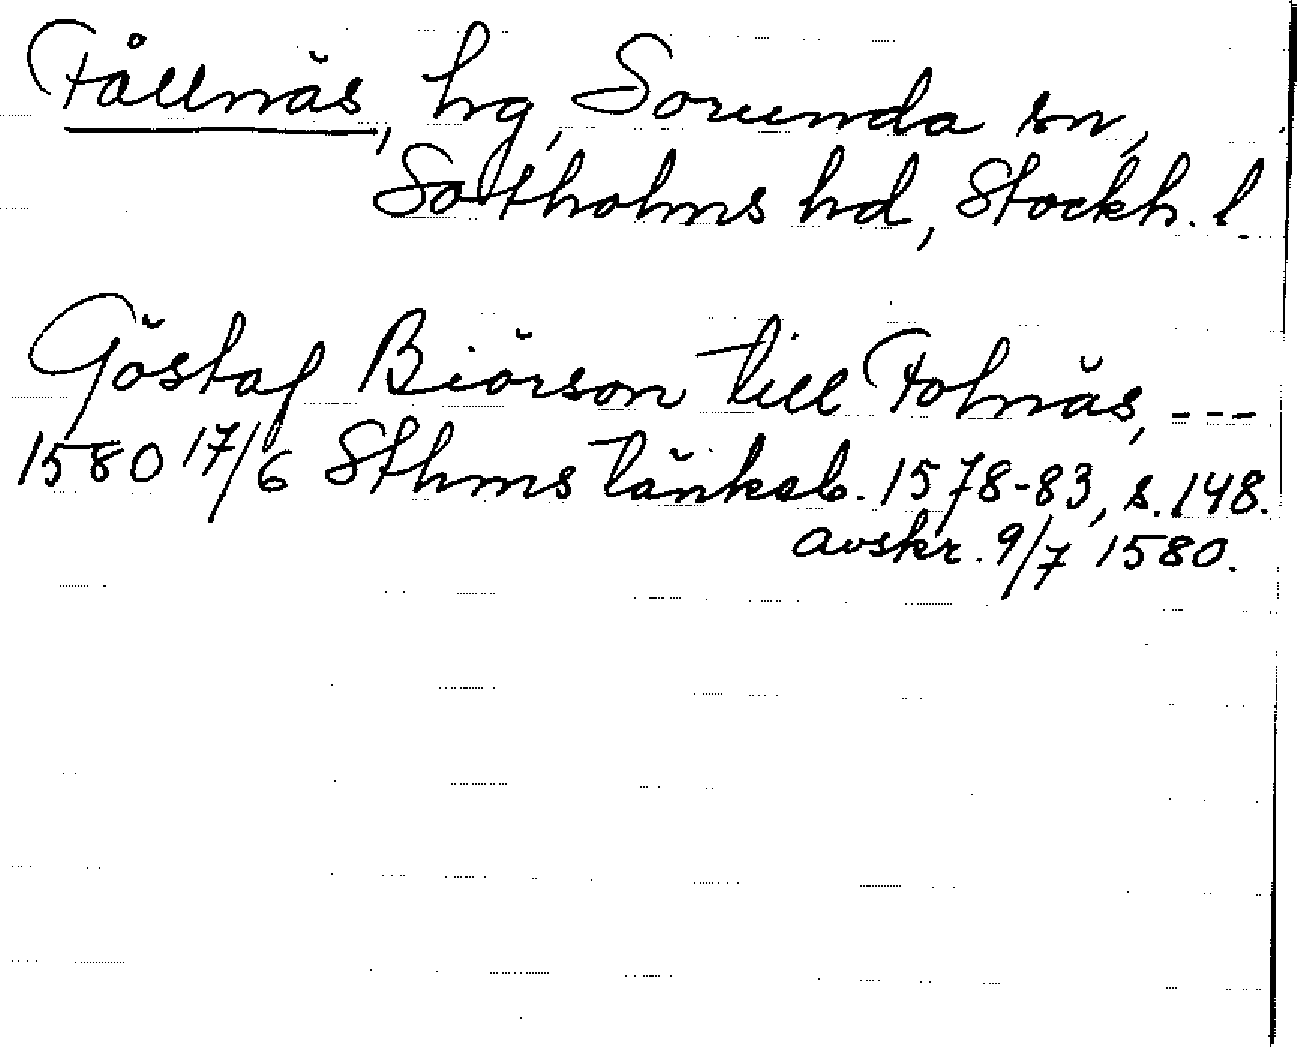 Fållnäs, hg, Sorunda sn,
Sotholms hd, Stockh. l.
Göstaf Biörson till Folnäs, ---
1580 17/6 Sthms tänkeb. 1578-83, s. 148.
avskr. 9/7 1580.